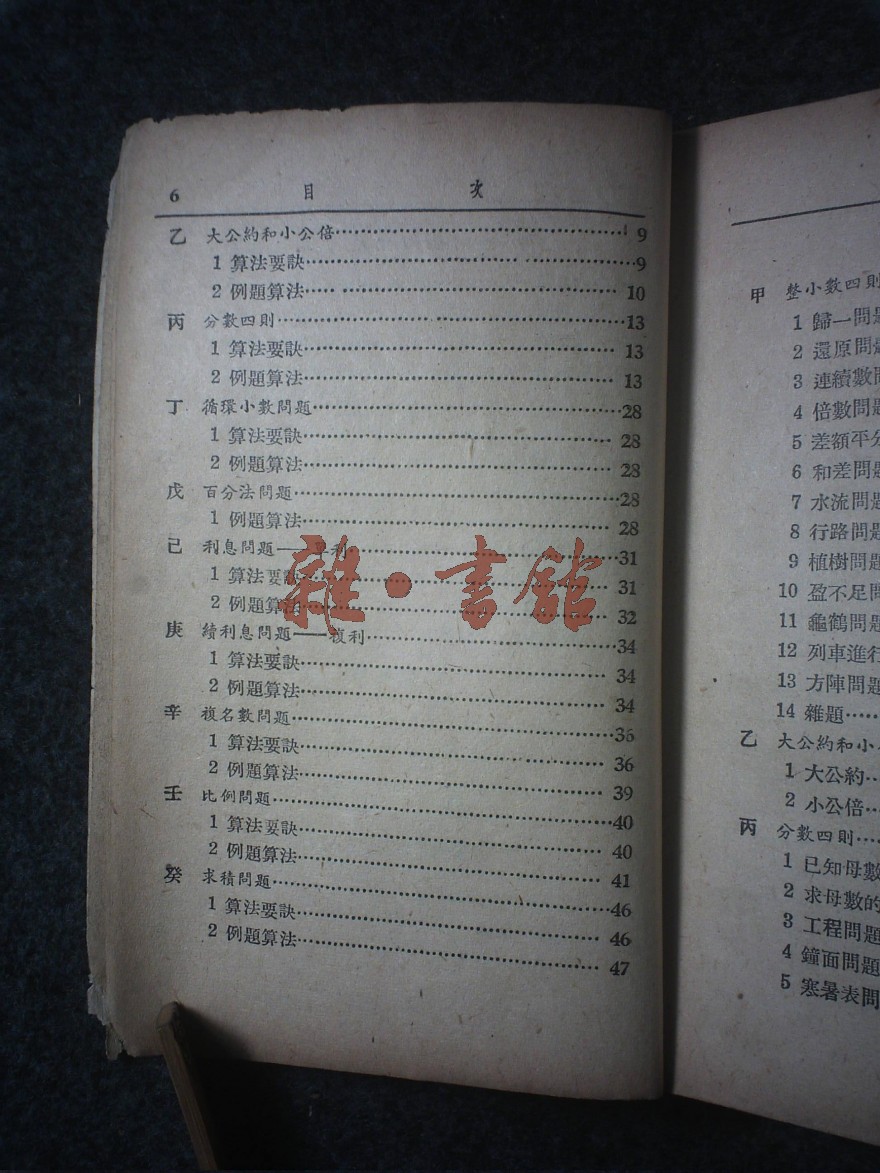 6 目 次
乙 大公約和小公倍……9
1 算法要訣……9
2 例題算法……10
丙 分數四則……13
1 算法要訣……13
2 例題算法……13
丁 循環小數問題……28
1 算法要訣……28
2 例題算法……28
戊 百分法問題……28
1 例題算法……28
己 利息問題——單利……31
1 算法要訣……31
2 例題算法……32
庚 續利息問題——複利……34
1 算法要訣……34
2 例題算法……34
辛 複名數問題……36
1 算法要訣……36
2 例題算法……39
壬 比例問題……40
1 算法要訣……40
2 例題算法……41
癸 求積問題……46
1 算法要訣……46
2 例題算法……47
雜·書館
甲 整小數四則
1 歸一問題
2 還原問題
3 連續數問
4 倍數問題
5 差額平分
6 和差問題
7 水流問題
8 行路問題
9 植樹問題
10 盈不足問
11 龜鶴問題
12 列車進行
13 方陣問題
14 雜題……
乙 大公約和小
1 大公約……
2 小公倍……
丙 分數四則……
1 已知母數
2 求母數的
3 工程問題
4 鐘面問題
5 寒暑表問